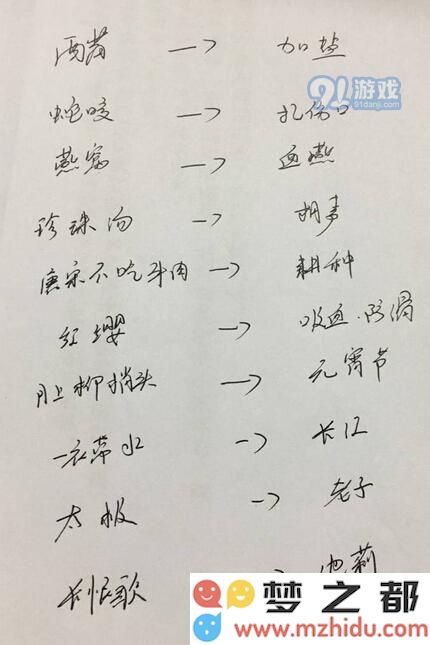 酒菌 → 加盐
91游戏
91danji.com
蛇咬 → 扎伤口
燕窝 → 血燕
珍珠汤 → 胡椒
唐宋不吃牛肉 → 耕种
红缨 → 吸血.防滑
月上柳梢头 → 元宵节
一衣带水 → 长江
太极 → 老子
长恨歌 → 莉
梦之都
www.mzhidu.com